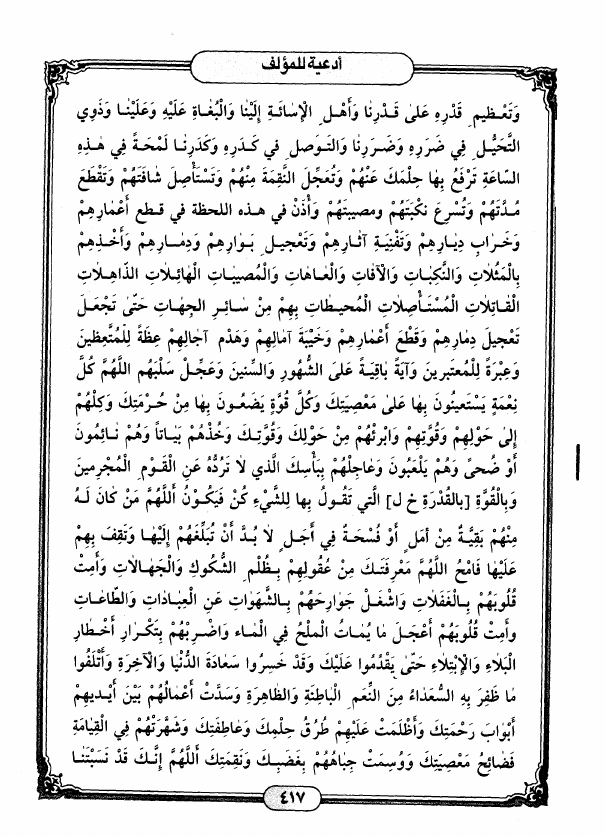 أدعية للمؤلف
وَتَعْظيمِ قَدْرِهِ عَلىٰ قَدْرِنٰا وَأَهْلِ الْإسٰائَةِ إِلَيْنٰا وَالْبُغٰاةِ عَلَيْهِ وَعَلَيْنٰا وَذَوِي
التَّحَيُّلِ في ضَرَرِهِ وَضَرَرِنٰا وَالتَّوَصُّلِ في كَدَرِهِ وَكَدَرِنٰا لَمْحَةً فِي هٰذِهِ
السّٰاعَةِ تَرْفَعُ بِهٰا حِلْمَكَ عَنْهُمْ وَتُعَجِّلُ النَّقِمَةَ مِنْهُمْ وَتَسْتَأْصِلَ شٰافَتَهُمْ وَتَقْطَعَ
مُدَّتَهُمْ وَتُسْرِعَ نَكْبَتَهُمْ ومصيبتَهُمْ وَأْذَنْ في هذه اللحظة في قطع أَعْمارِهِمْ
وَخَرٰابِ دِيٰارِهِمْ وَتَفْنِيَةِ آثٰارِهِمْ وَتَعْجيلِ بَوٰارِهِمْ وَدِمٰارِهِمْ وَأَخْذِهِمْ
بِالْمَثُلٰاتِ وَالنَّكِبٰاتِ وَالْآفٰاتِ وَالْعٰاهٰاتِ وَالْمُصيبٰاتِ الْهٰائِلٰاتِ الذّٰاهِلٰاتِ
الْقٰاتِلٰاتِ الْمُسْتَأْصِلٰاتِ الْمُحيطٰاتِ بِهِمْ مِنْ سٰائِرِ الْجِهٰاتِ حَتّىٰ تَجْعَلَ
تَعْجيلَ دِمٰارِهِمْ وَقَطْعَ أَعْمٰارِهِمْ وَخَيْبَةَ آمٰالِهِمْ وَهَدْمِ آجٰالِهِمْ عِظَةً لِلْمُتَّعِظينَ
وَعِبْرَةً لِلْمُعتبرينَ وَآيَةً بٰاقِيَةً عَلَى الشُّهُورِ وَالسِّنينَ وَعَجِّلْ سَلْبَهُم اللّٰهُمَّ كُلَّ
نِعْمَةٍ يَسْتَعينُونَ بِهٰا عَلىٰ مَعْصِيَتِكَ وَكُلَّ قُوَّةٍ يَضَعُونَ بِهٰا مِنْ حُرْمَتِكَ وَكِلْهُمْ
إِلىٰ حَوْلِهِمْ وَقُوَّتِهِمْ وَابْرئْهُمْ مِنْ حَوْلِكَ وَقُوَّتِكَ وَخُذْهُمْ بَيٰاتاً وَهُمْ نٰائِمُونَ
أَوْ ضُحىً وَهُمْ يَلْعَبُونَ وَعٰاجِلْهُمْ بِبَأْسِكَ الَّذي لٰا تَرُدُّهُ عَنِ الْقَوْمِ الْمُجْرِمينَ
وَبِالْقُوَّةِ [بالقُدْرَةِ خ ل] الَّتي تَقُولُ بِها لِلشَّيْءِ كُنْ فَيَكُوْنُ أَللّٰهُمَّ مَنْ كٰانَ لَهُ
مِنْهُمْ بَقِيَّةٌ مِنْ أَمَلٍ أَوْ فُسْحَةٌ فِي أَجَلٍ لٰا بُدَّ أَنْ تُبَلِّغَهُمْ إِلَيْهٰا وَتَقِفَ بِهِمْ
عَلَيْهٰا فَامْحُ اللّٰهُمَّ مَعْرِفَتَكَ مِنْ عُقُولِهِمْ بِظُلْمِ الشُّكُوكِ وَالْجَهٰالٰاتِ وَأَمِتْ
قُلُوبَهُمْ بِالْغَفَلٰاتِ وَاشْغَلْ جَوٰارِحَهُمْ بِالشَّهَوٰاتِ عَنِ الْعِبٰادٰاتِ وَالطّٰاعٰاتِ
وأَمِتْ قُلُوبَهُمْ أَعْجَلَ مٰا يُمٰاتُ الْمِلْحُ فِي الْمٰاء وَاضْرِبْهُمْ بِتَكْرٰارِ أَخْطٰارِ
الْبَلٰاءِ وَالْإِبْتِلٰاءِ حَتّىٰ يَقْدَمُوا عَلَيْكَ وَقَدْ خَسِرُوا سَعٰادَةَ الدُّنْيٰا وَالْآخِرَةِ وَأَتْلَفُوا
مٰا ظَفِرَ بِهِ السُّعَدٰاءُ مِنَ النِّعَمِ الْبٰاطِنَةِ وَالظّٰاهِرَةِ وَسَدَّتْ أَعْمٰالُهُمْ بَيْنَ أَيْديهِمْ
أَبْوٰابَ رَحْمَتِكَ وَأَظْلَمَتْ عَلَيْهِمْ طُرُقُ حِلْمِكَ وَعٰاطِفَتِكَ وَشَهَّرَتْهُمْ فِي الْقِيٰامَةِ
فَضٰائِحُ مَعْصِيَتِكَ وَوُسِمَتْ جِبٰاهُهُمْ بِغَضَبِكَ وَنَقِمَتِكَ أَللّٰهُمَّ إِنَّكَ قَدْ نَسَبْتَنٰا
٤١٧